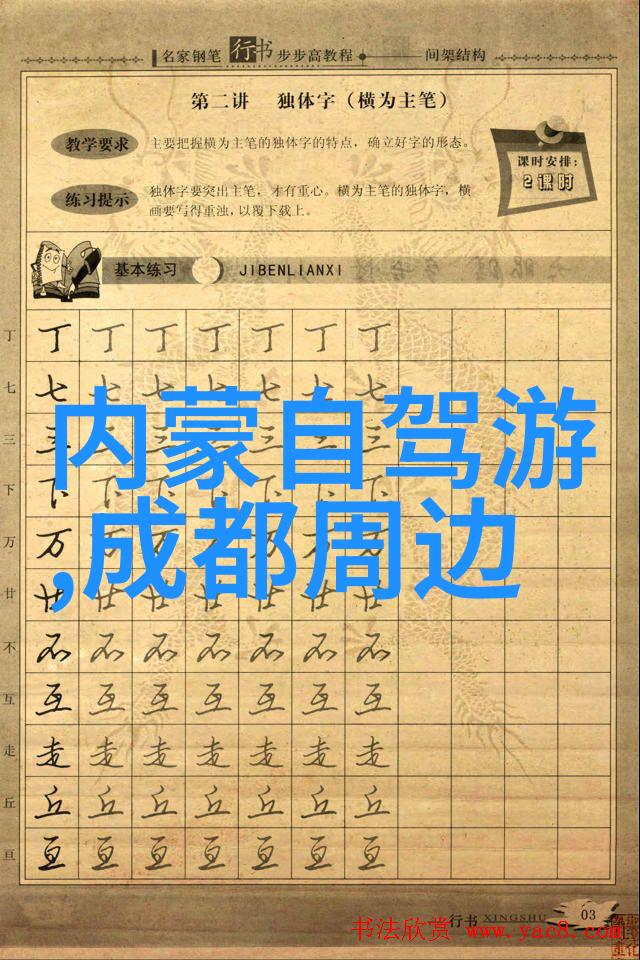 名家钢笔行书步步高教程 间架结构
第二讲 独体字（横为主笔）
教学要求 主要把握横为主笔的独体字的特点，确立好字的形态。
课时安排：
2课时
练习提示 独体字要突出主笔，才有重心。横为主笔的独体字，横
画要写得重浊，以覆下载上。
基本练习 JIBENLIANXI
丁 丁 丁 丁 丁 丁 丁 丁
七 七 七 七 七 七 七 七
内蒙自驾游
三 三 三 三 三 三 三 三
下 下 下 下 下 下 下 下
,成都周边
万 万 万 万 万 万 万 万
廿 廿 廿 廿 廿 廿 廿 廿
不 不 不 不 不 不 不 不
互 互 互 互 互 互 互 互
走 走 走 走 走 走 走 走
丘 丘 丘 丘 丘 丘 丘 丘
亘 亘 亘 亘 亘 亘 亘 亘
行书 XINGSHU 03
书法欣赏 www.yac8.com